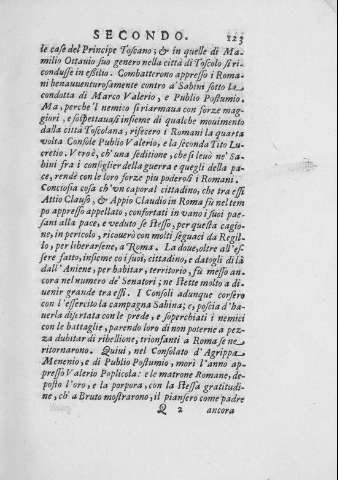 SECONDO. 123
le case del Principe Toscano; & in quelle di Ma-
milio Ottauio suo genero nella città di Toscolo si ri-
condusse in essilio. Combatterono appresso i Roma-
ni benauuenturosamente contro a' Sabini sotto la
condotta di Marco Valerio, e Publio Postumio.
Ma, perche'l nemico si riarmaua con forze mag-
giori, e sospettauasi insieme di qualche mouimento
dalla città Toscolana, rifecero i Romani la quarta
volta Console Publio Valerio, e la seconda Tito Lu-
cretio. Vero è, ch'una seditione, che si leuò ne' Sa-
bini fra i consiglier della guerra e quegli della pa-
ce, rendè con le loro forze piu poderosi i Romani.
Conciosia cosa ch'vn caporal cittadino, che tra essi
Attio Clauso, & Appio Claudio in Roma fù nel tem
po appresso appellato, confortati in vano i suoi pae-
sani alla pace, e veduto se stesso, per questa cagio-
ne, in pericolo, ricouerò con molti seguaci da Regil-
lo, per liberarsene, a Roma. La doue, oltre all'es-
sere fatto, insieme co i suoi, cittadino, e datogli di là
dall'Aniene, per habitar, territorio, fù messo an-
cora nel numero de' Senatori; ne stette molto a di-
uenir grande tra essi. I Consoli adunque corsero
con l'essercito la campagna Sabina; e, poscia d'ha-
uerla disertata con le prede, e soperchiati i nemici
con le battaglie, parendo loro di non poterne a pez-
za dubitar di ribellione, trionfanti a Roma se ne
ritornarono. Quiui, nel Consolato d'Agrippa
Menenio, e di Publio Postumio, morì l'anno ap-
presso Valerio Poplicola: e le matrone Romane, de-
posto l'oro, e la porpora, con la stessa gratitudi-
ne, ch'a Bruto mostrarono, il piansero come padre
Q 2 ancora